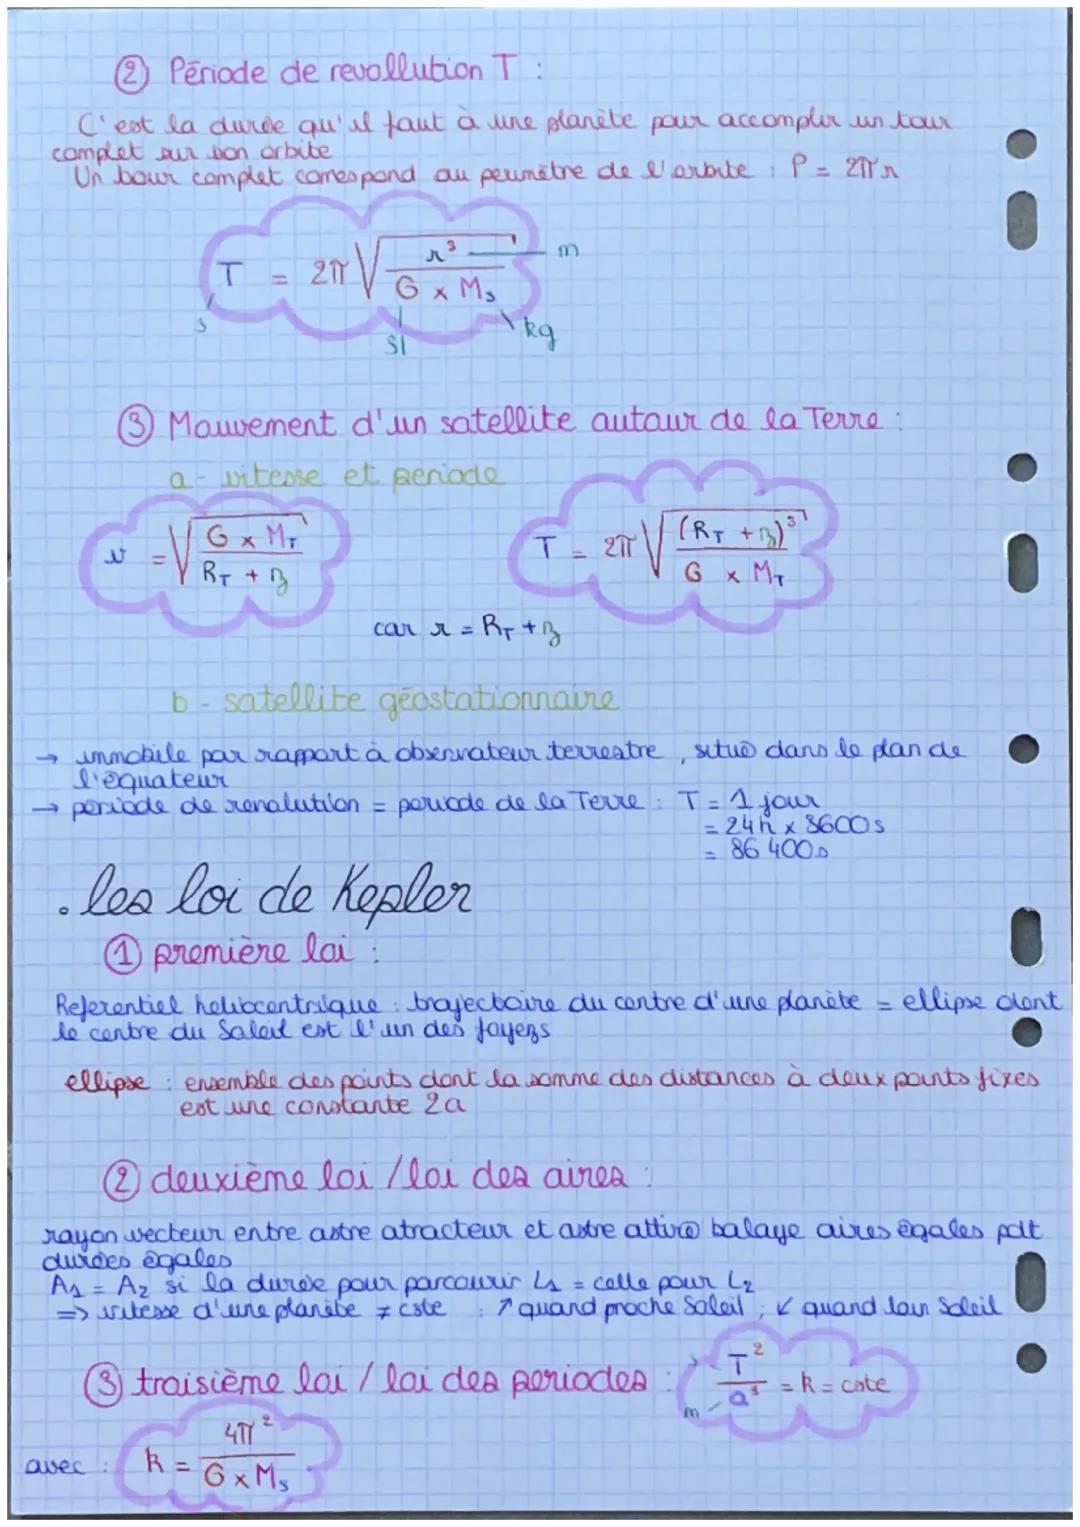 ② Période de revollution T :
C'est la durée qu'il faut à une planète pour accomplir un tour
complet sur son orbite
Un tour complet correspond au périmètre de l'orbite : P = 2πr
T = 2π √(r³ / (G × Ms))
m
s
SI
kg
③ Mouvement d'un satellite autour de la Terre :
a - vitesse et periode
v = √((G × M_T) / (R_T + z))
T = 2π √((R_T + z)³ / (G × M_T))
car r = R_T + z
b - satellite géostationnaire
→ immobile par rapport à observateur terrestre, situé dans le plan de
l'équateur
→ période de revolution = période de la Terre : T = 1 jour
= 24h × 3600s
= 86 400s
. les loi de Kepler
① première loi :
Referentiel heliocentrique : trajectoire du centre d'une planète = ellipse dont
le centre du Soleil est l'un des foyers
ellipse : ensemble des points dont la somme des distances à deux points fixes
est une constante 2a
② deuxième loi / loi des aires :
rayon vecteur entre astre atracteur et astre attiré balaye aires égales pdt
durées égales
A₁ = A₂ si la durée pour parcourir L₁ = celle pour L₂
=> vitesse d'une planète ≠ cste : ↗ quand proche Soleil ; ↙ quand loin Soleil
③ troisième loi / loi des periodes : T² / a³ = k = cste
s
m
avec : k = 4π² / (G × Ms)